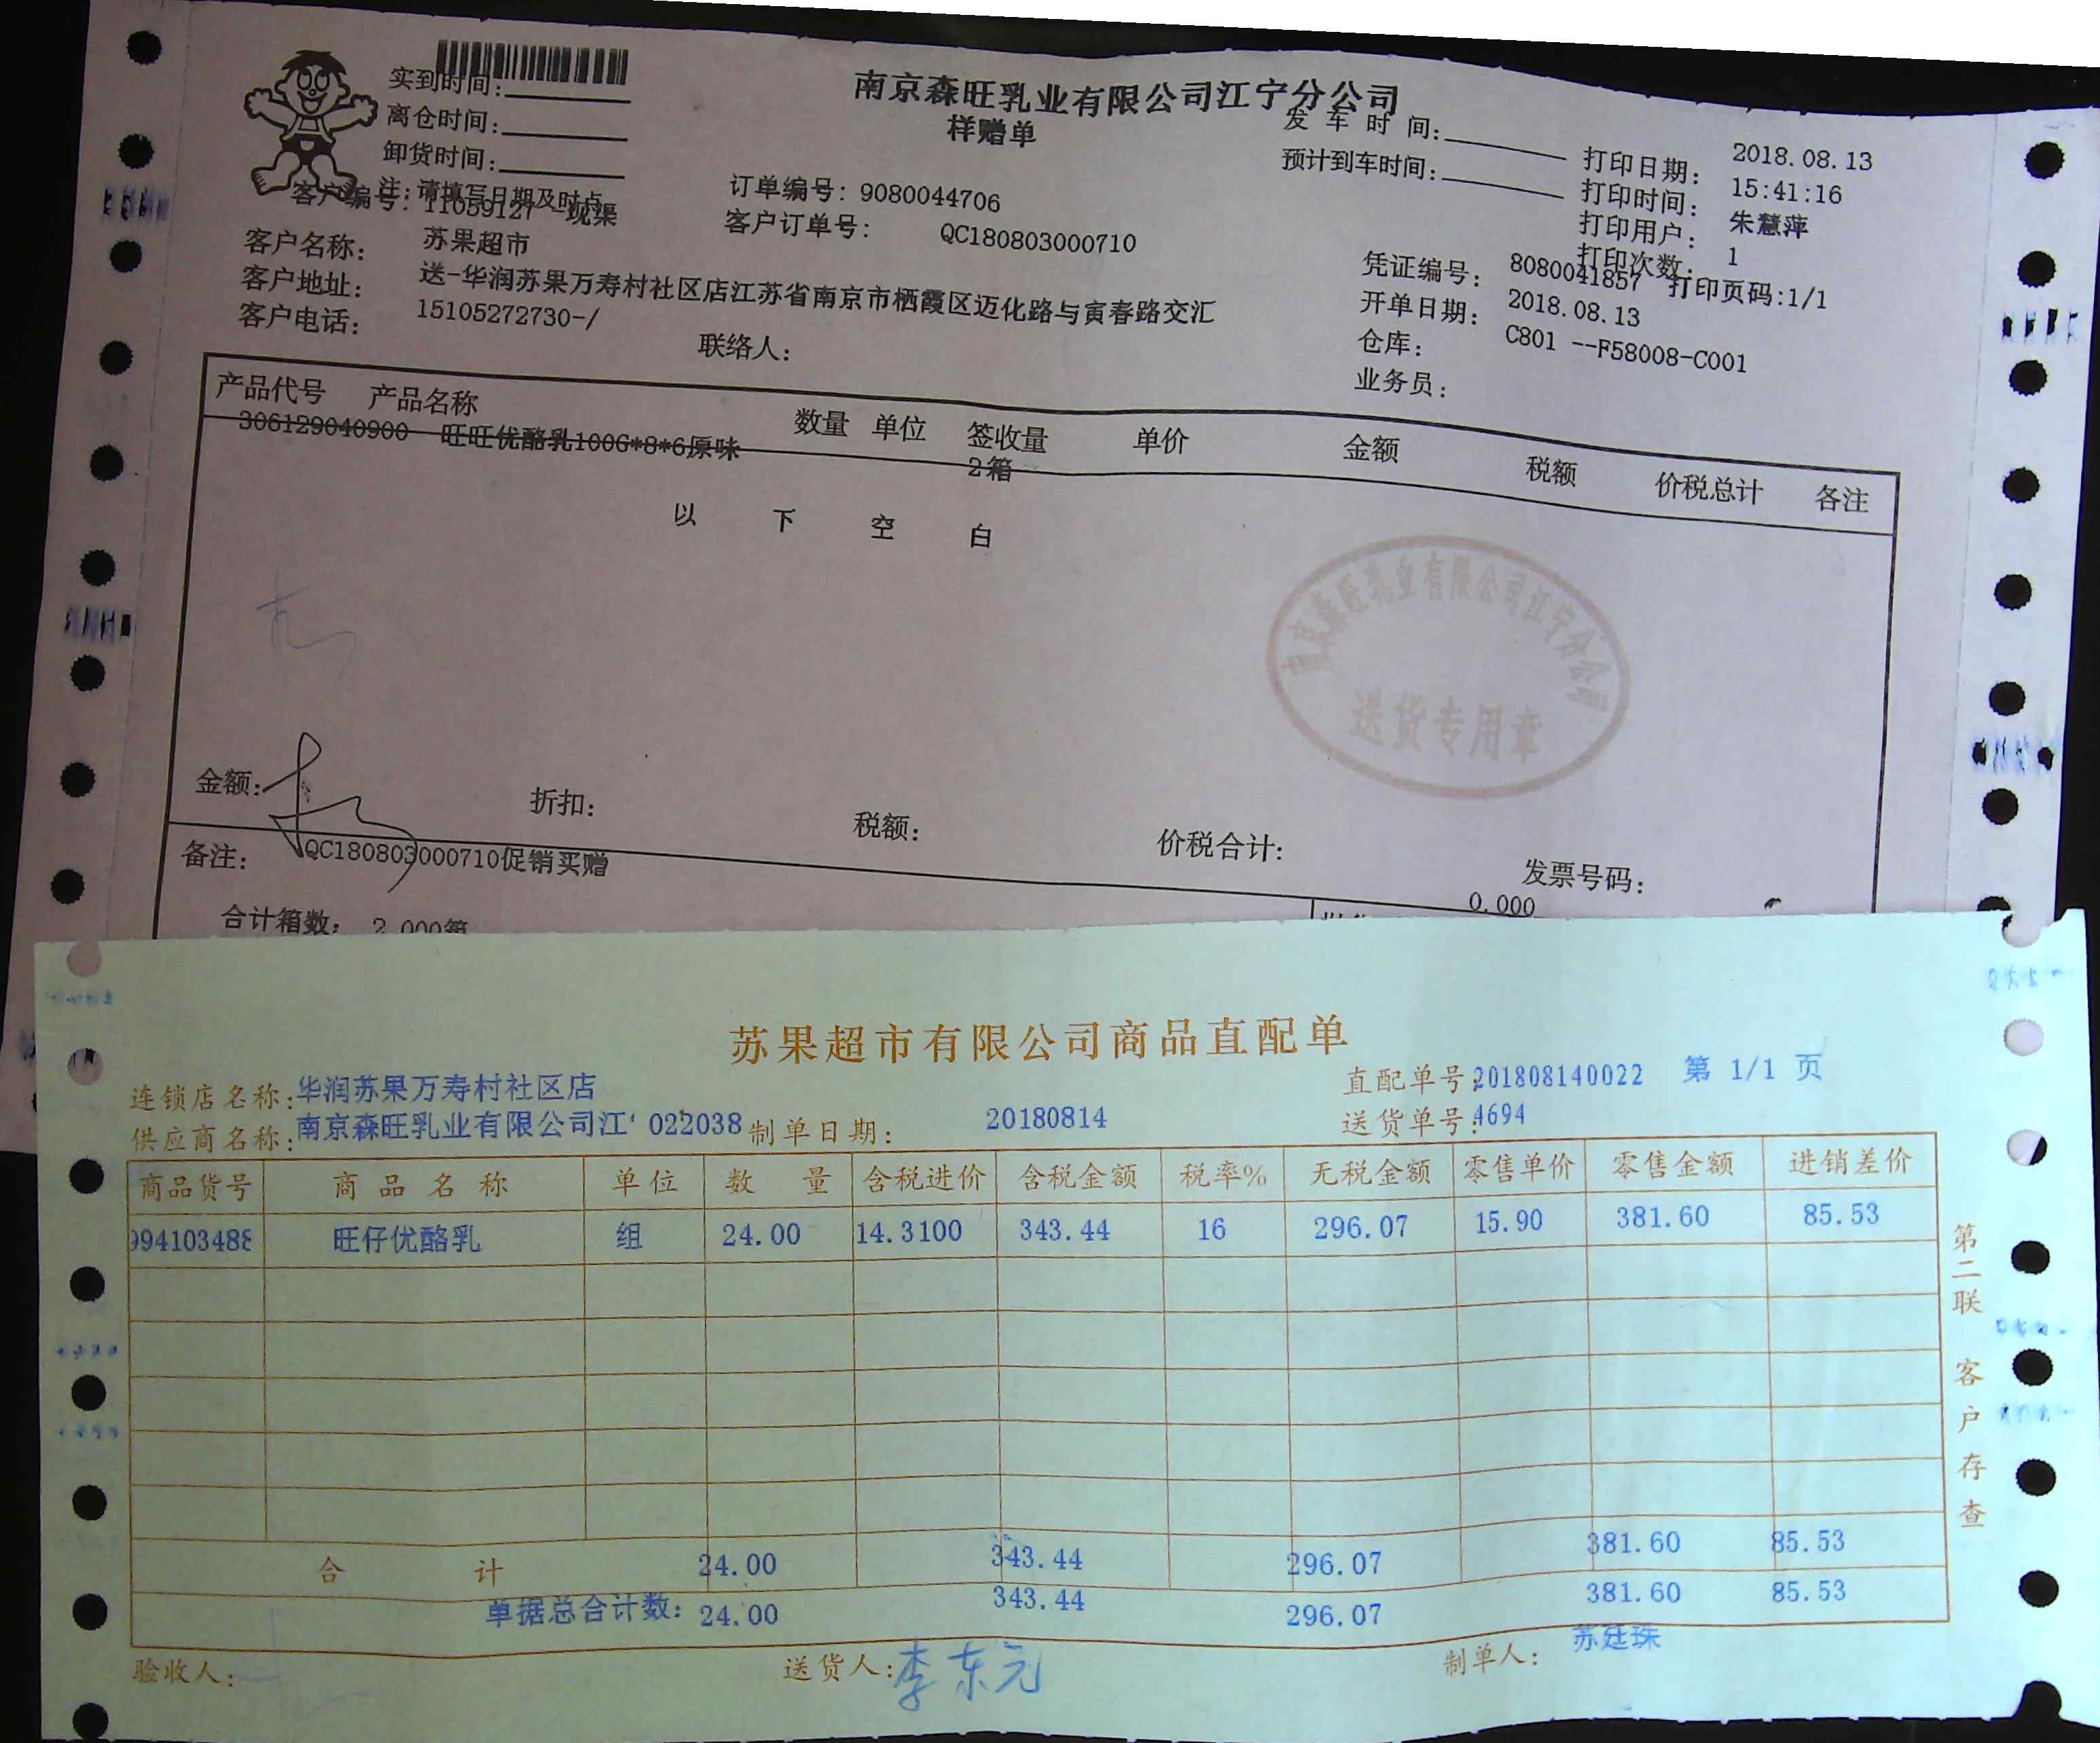 南京森旺乳业有限公司江宁分公司
样赠单
实到时间:
离仓时间:
卸货时间:
注:请填写日期及时点
发 车 时 间:
预计到车时间:
打印日期: 2018.08.13
打印时间: 15:41:16
打印用户: 朱慧萍
打印次数: 1
打印页码:1/1
客户编号: 11059127 -现渠
订单编号: 9080044706
客户名称: 苏果超市
客户订单号: QC180803000710
客户地址: 送-华润苏果万寿村社区店江苏省南京市栖霞区迈化路与寅春路交汇
客户电话: 15105272730-/
联络人:
凭证编号: 8080041857
开单日期: 2018.08.13
仓库: C801 --F58008-C001
业务员:
产品代号 产品名称 数量 单位 签收量 单价 金额 税额 价税总计 各注
306129040900 旺旺优酪乳100G*8*6原味 2箱
以 下 空 白
南京森旺乳业有限公司江宁分公司
送货专用章
金额: 折扣: 税额: 价税合计: 发票号码:
备注: QC180803000710促销买赠
0.000
合计箱数: 2.000箱
苏果超市有限公司商品直配单
连锁店名称:华润苏果万寿村社区店
直配单号:201808140022 第 1/1 页
供应商名称:南京森旺乳业有限公司江' 022038 制单日期: 20180814
送货单号:4694
商品货号 商品名称 单位 数量 含税进价 含税金额 税率% 无税金额 零售单价 零售金额 进销差价
994103488 旺仔优酪乳 组 24.00 14.3100 343.44 16 296.07 15.90 381.60 85.53
合计 24.00 343.44 296.07 381.60 85.53
单据总合计数: 24.00 343.44 296.07 381.60 85.53
验收人: 送货人:李东元 制单人: 苏廷珠
第二联 客户存查